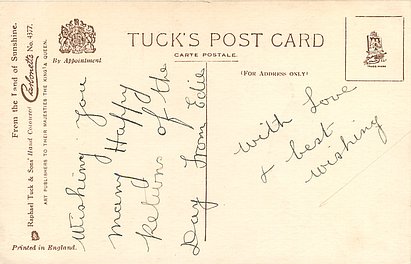 TUCK'S POST CARD
CARTE POSTALE.
By Appointment
(FOR ADDRESS ONLY)
From the Land of Sunshine.
Carbonette No. 4377.
Raphael Tuck & Sons'
ART PUBLISHERS TO THEIR MAJESTIES THE KING & QUEEN.
Printed in England.
Wishing You
many Happy
Returns of the
Day from Edie
with Love
& best
wishing